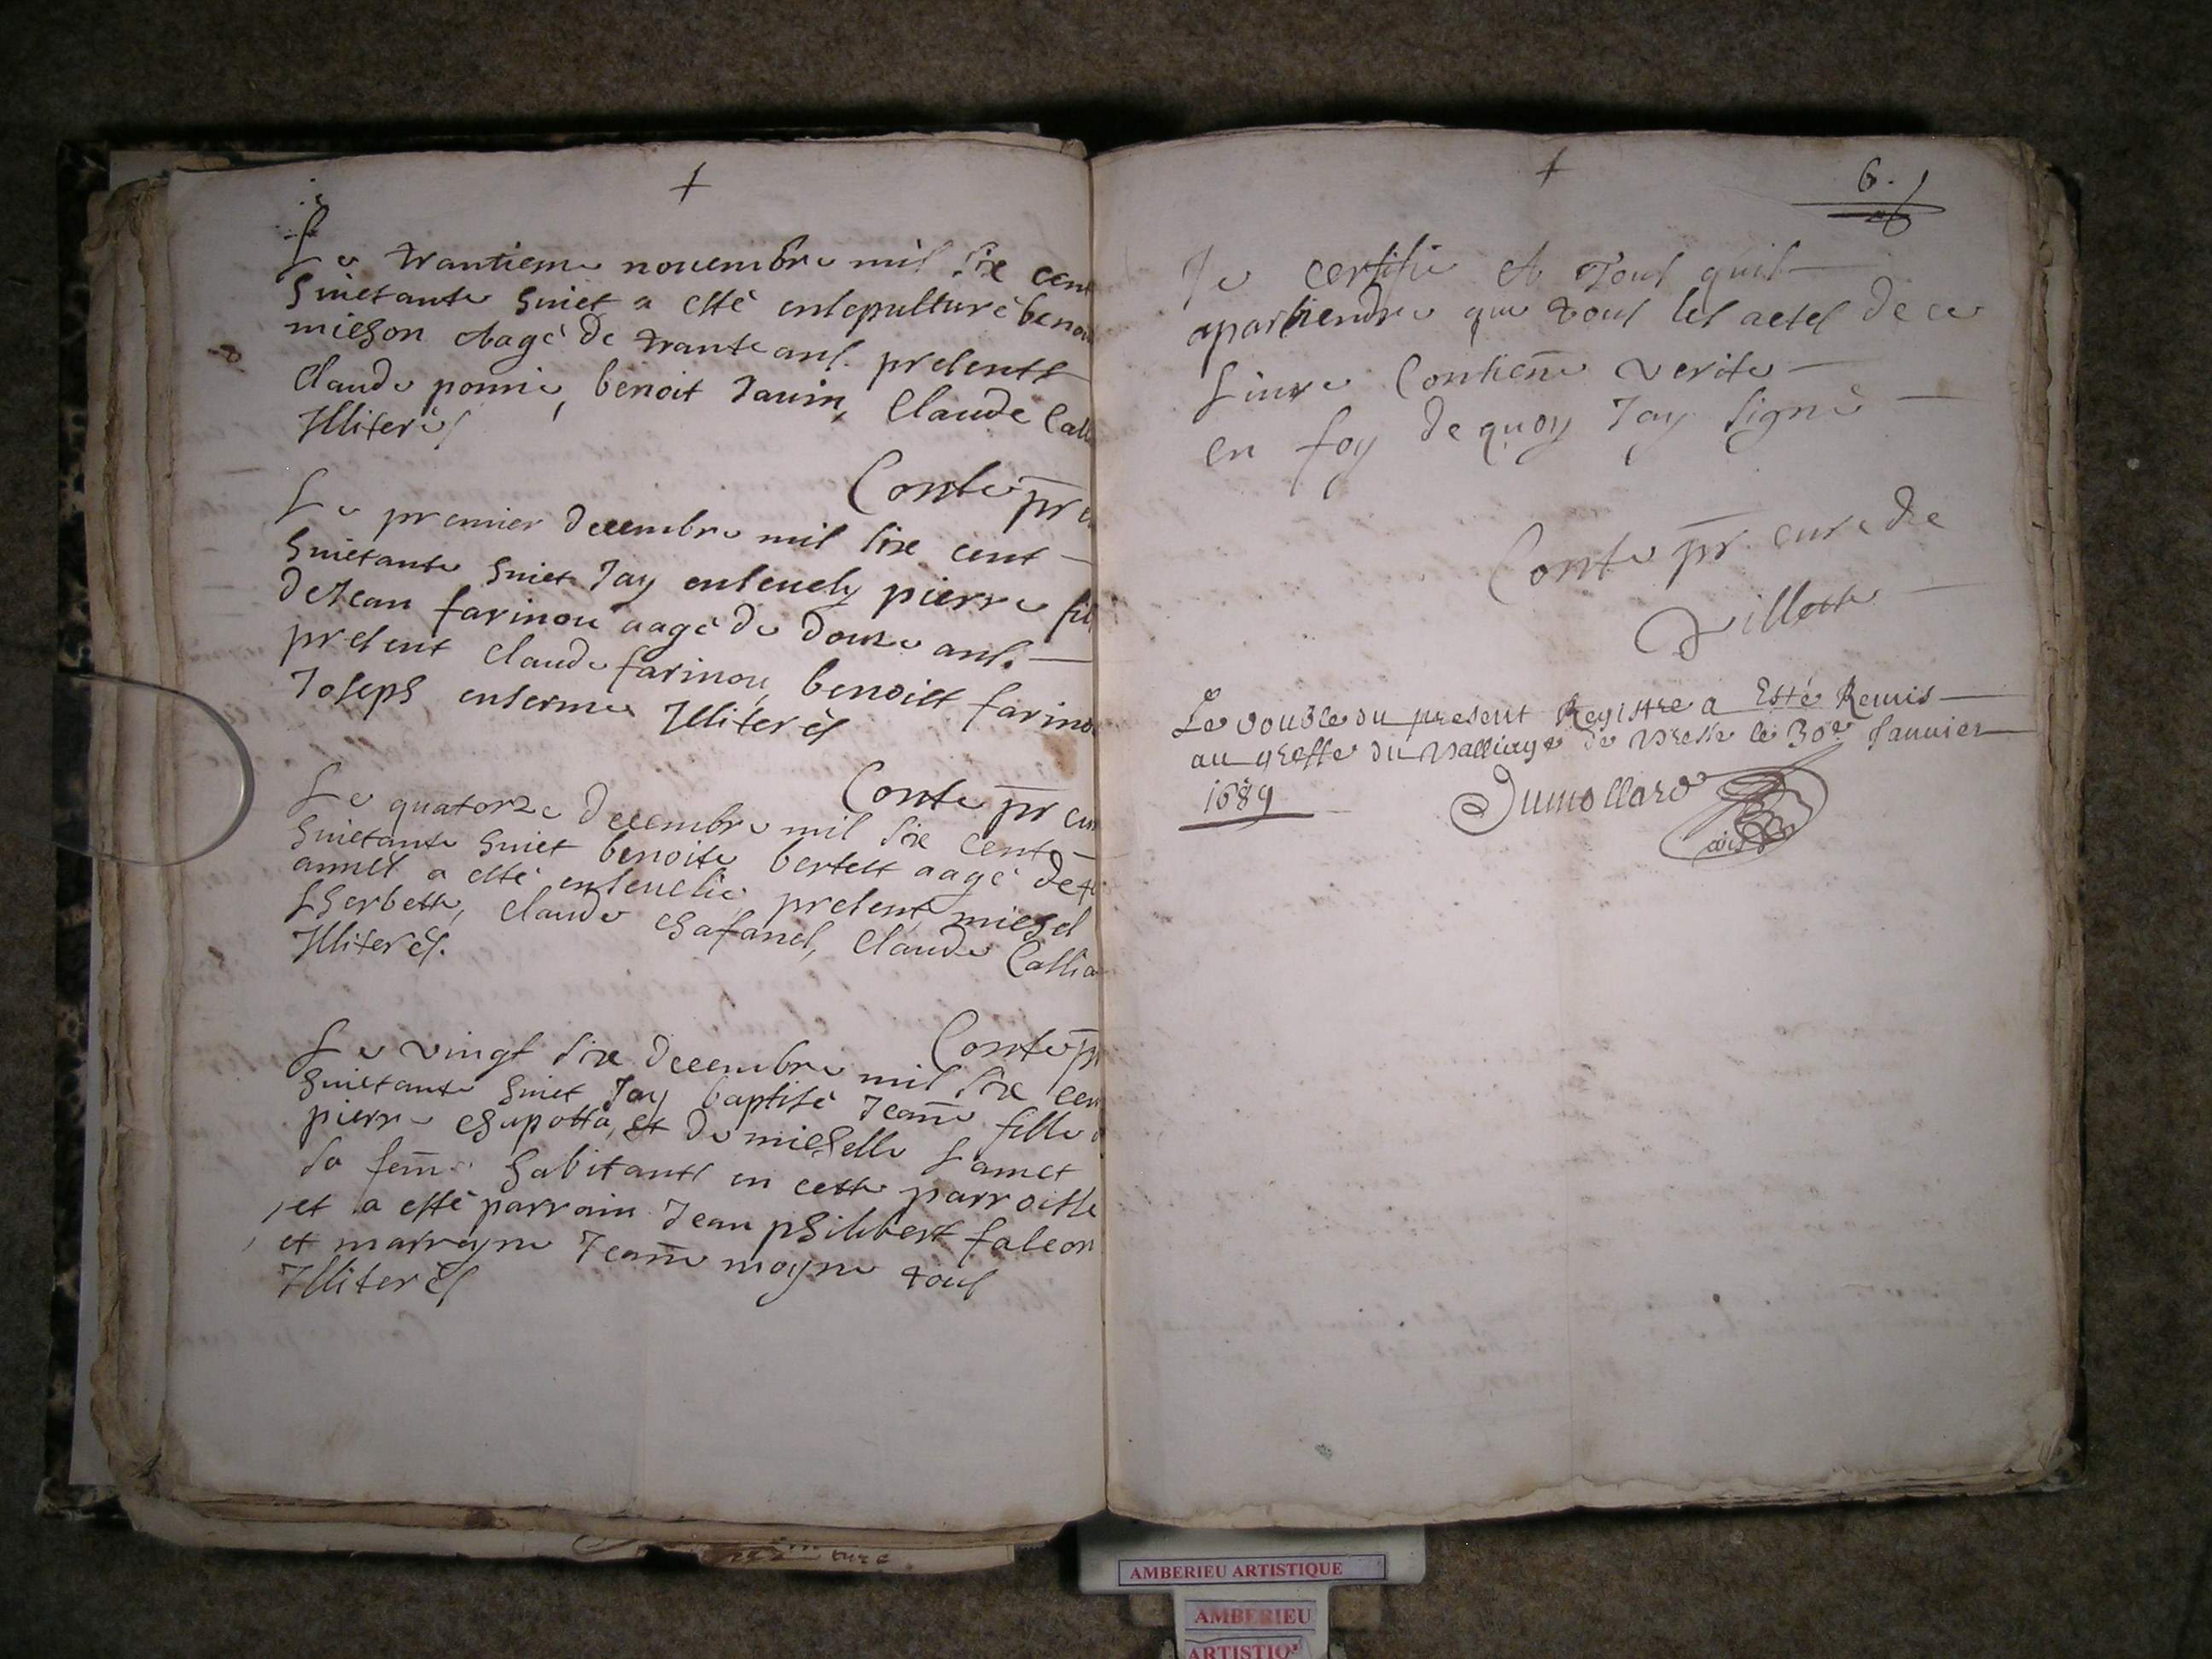 Le trantieme nouembre mil six cent
huictante huict a esté ensepulturé benoi
michon eagé de trante ans. presents
Claude ponnie, benoit Jauin, Claude Call
Illiterés
Conte pr
Le premier decembre mil six cent
huictante huict Jay enseuely pierre fils
de Jean farinou aagé de douze ans.
present claude farinou, benoist farino
Joseph enserme Illiterés
Conte pr cur
Le quatorze decembre mil six cent
huictante huict benoite bertet aagé de
annés a esté enseuelie, present michel
Lherbette, claude chafanel, claude Callia
Illiterés.
Conte pr
Le vingt six decembre mil six cen
huictante huict Jay baptisé Jeane fille
pierre chapotta, et de michelle Lamet
sa feme habitants en cette parroisse
et a esté parrain Jean philibert falcon
et marrayne Jeane moyne tous
Illiterés
6.
Je certifie et Tous quil
apartiendra que tous les actes de ce
Liure Contiene verite
en foy de quoy Jay signé
Conte pr. cure de
Villette
Le double du present Registre a Esté Remis
au greffe du Balliage de Bresse le 30e Januier
1689
Dumollard